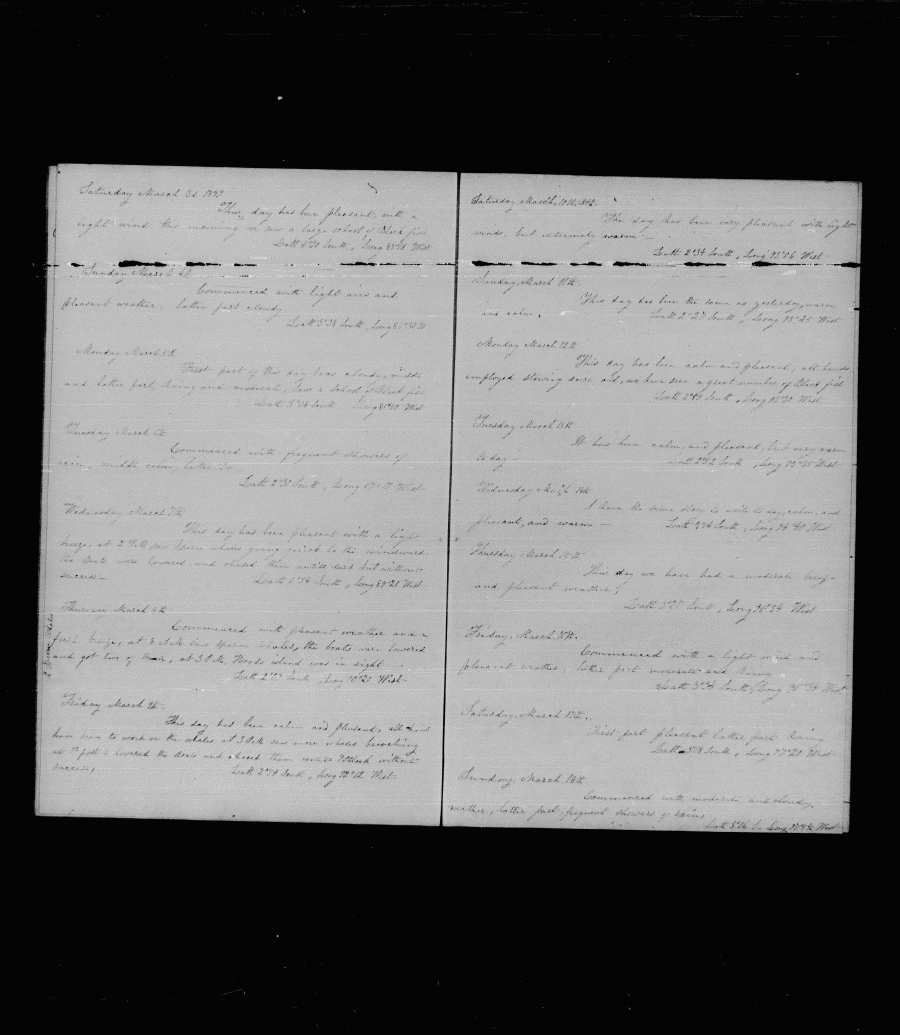 Saturday March 3d 1849
This day has been pleasant, with a
light wind this morning we saw a large school of Black fish
Latt 4°20 South, Long West
Sunday March 4th
Commenced with light airs and
pleasant weather, latter part cloudy
Latt 3°38 South, Long
Monday March 5th
First part of this day was cloudy, middle
and latter part, rainy and moderate, saw a School of Black fish
Latt South Long West
Tuesday March 6th
Commenced with frequent showers of
rain, middle calm, latter Do
Latt 2°30 South, Long West
Wednesday March 7th
This day has been pleasant with a light
breeze, at 2 P.M. saw sperm whales going quick to the windward
the Boats were lowered and chased them untill dark but without
success
Latt 1°34 South, Long 89°20 West
Thursday March 8th
Commenced with pleasant weather and a
fresh breeze, at 8 A.M. saw sperm whales, the boats were lowered
and got two of them, at 3 P.M. Hoods island was in sight
Latt South, Long West
2 Sperm Whales
Friday March 9th
This day has been calm and pleasant, all hands
have been to work on the whales, at 3 saw more whales breaching
at ½ past 5 lowered the Boats and chased them untill without
success,
Latt South, Long West
Saturday, March, 10th, 1849.
This day has been very pleasant with light
winds, but extremely warm
Latt 2°34 South, Long 93°06 West
Sunday, March 11th.
This day has been the same as yesterday, warm
and calm.
Latt 2°27 South, Long 93°25 West
Monday March 12th
This day has been calm and pleasant, all hands
employed stowing down oil, we have seen a great number of Black fish
Latt South, Long 93°30 West
Tuesday March 13th
It has been calm, and pleasant, but very warm
to day
Latt South, Long 93°35 West
Wednesday March 14th
I have the same story to write to day, calm, and
pleasant, and warm
Latt South, Long West
Thursday March 15th
This day we have had a moderate breeze
and pleasant weather
Latt 3°27 South, Long West
Friday, March, 16th.
Commenced with a light wind and
pleasant weather, latter part moderate and Rainy
Latt 3°34 South, Long West
Saturday, March 17th.
First part pleasant latter part Rainy
Latt South, Long 97°28 West
Sunday, March, 18th.
Commenced with moderate and cloudy
weather, latter part frequent showers of rain
Latt 3°16 So Long West